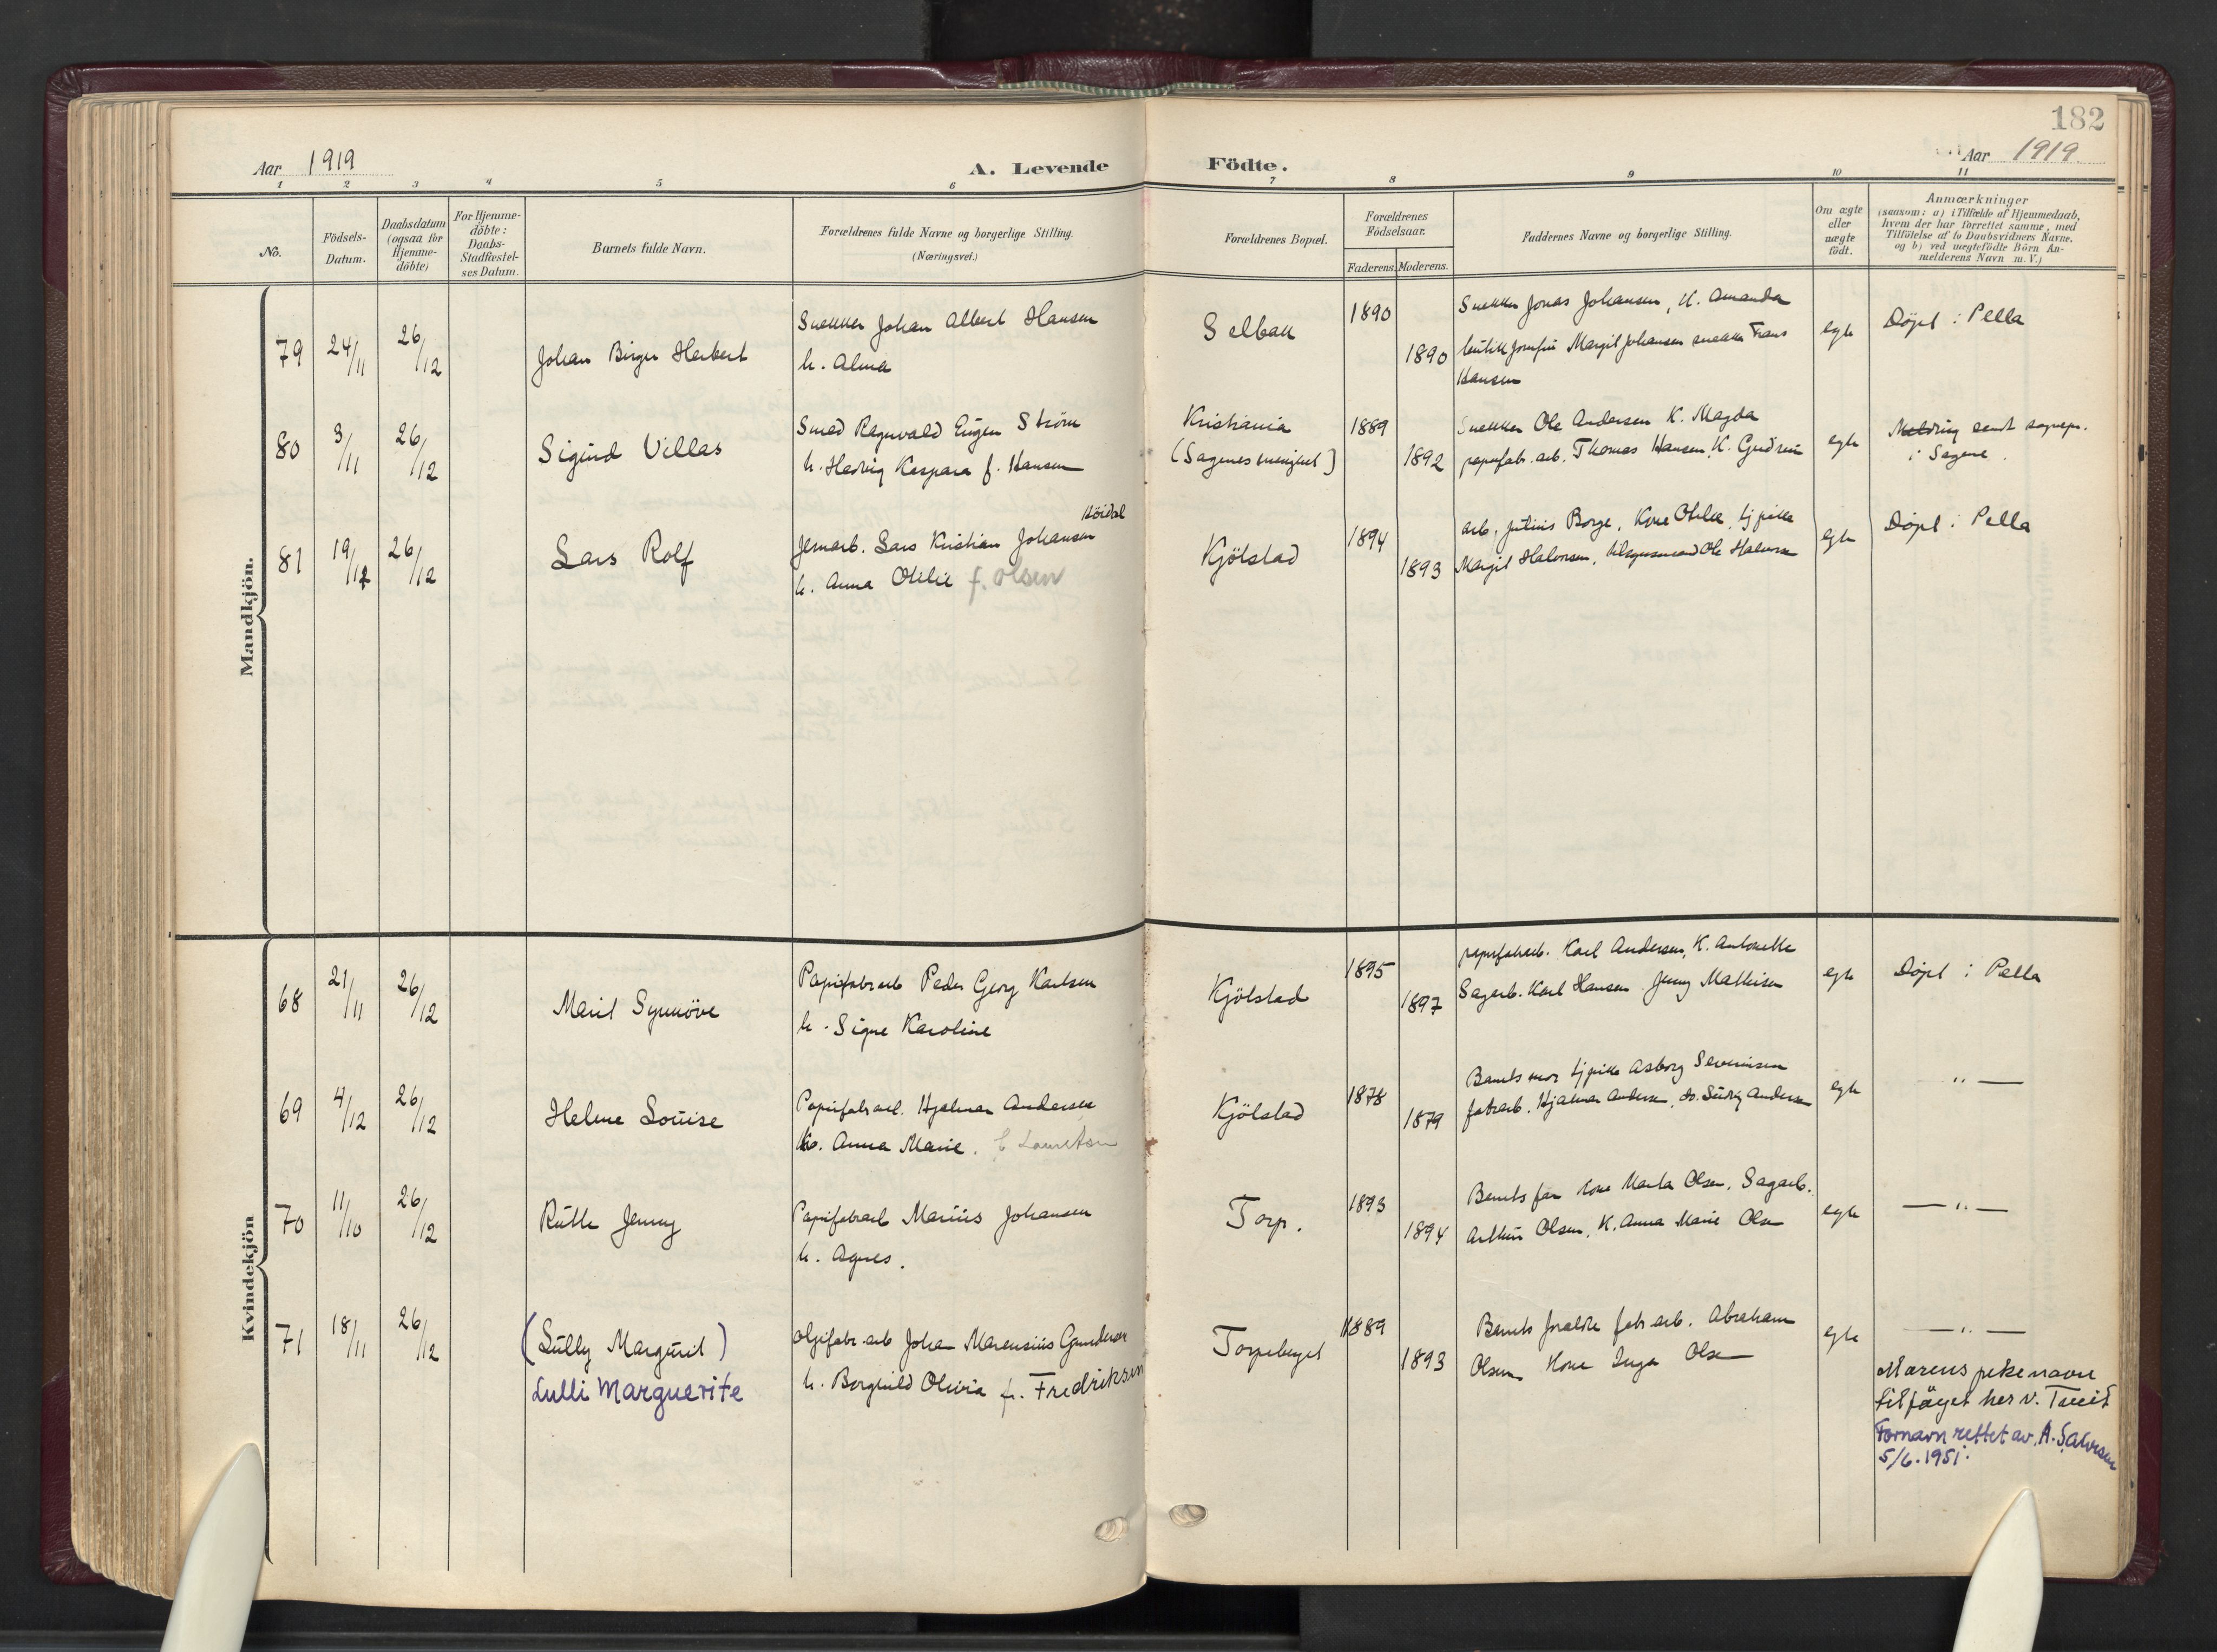 182
Aar 1919
A. Levende
Födte.
Aar 1919
1 2 3 4 5 6 7 8 9 10 11
No.
Födsels-
Datum.
Daabsdatum
(ogsaa for
Hjemme-
döbte)
For Hjemme-
döbte:
Daabs-
Stadfæstel-
ses Datum.
Barnets fulde Navn.
Forældrenes fulde Navne og borgerlige Stilling.
(Næringsvei.)
Forældrenes Bopæl.
Forældrenes
Födselsaar.
Faderens. Moderens.
Faddernes Navne og borgerlige Stilling.
Om ægte
eller
uægte
födt.
Anmærkninger
(saasom: a) i Tilfælde af Hjemmedaab,
hvem der har forrettet samme, med
Tilföielse af to Daabsvidners Navne,
og b) ved uægtefödte Börn An-
melderens Navn m. V.)
Mandkjön.
79 24/11 26/12 Johan Birger Herbert
Snekker Johan Albert Hansen
h. Alma
Selbak
1890
1890
Snekker Jonas Johansen, K. Amanda
Margit Johansen snekker Frans
Hansen
egte
Döpt i Pella
80 3/11 26/12 Sigurd Villas
Smed Ragnvald Eugen Ström
h. Hedvig Kaspara f. Hansen
Kristiania
(Sagenes menighet)
1889
1892
Snekker Ole Andersen K. Magda
papirfabr. arb. Thomas Hansen, K. Gudrun
egte
Melding sendt sognepr.
i Sagene.
81 19/12 26/12 Lars Rolf
Höidal
Jernarb. Lars Kristian Johansen
h. Anna Otilie f. Olsen
Kjölstad
1894
1893
arb. Julius Borge, Kone Otilie, tj pike
Margit Halvorsen, Ole Halvorsen
egte
Döpt i Pella
Kvindekjön
68 21/11 26/12 Marit Synnöve
Papirfabrarb Peder Georg Karlsen
h. Signe Karoline
Kjölstad
1895
1897
papirfabrarb. Karl Andersen, K. Antonette
Sagarb. Karl Hansen Jenny Mathisen
egte
Döpt i Pella
69 4/12 26/12 Helene Louise
Papirfabrarb. Hjalmar Andersen
h. Anna Marie.
Kjölstad
1878
1879
Barnets mor tj pike Asborg Severinsen
fabrarb. Hjalmar Andersen, Andersen
egte
— " —
70 11/10 26/12 Ruth Jenny
Papirfabrarb Marius Johansen
h. Agnes.
Torp.
1893
1894
Barnets far kone Marta Olsen. Sagarb.
Arthur Olsen, K. Anna Marie Olsen
egte
— " —
71 18/11 26/12 (Lully Margurit)
Lulli Marguerite
oljefabr. arb Johan Marensius Gundersen
h. Borghild Olivia f. Fredriksen
Torpeberget
1889
1893
Barnets foreldre fabr arb. Abraham
Olsen Kone Inga Olsen
egte
— " —
Morens pikenavn
tilföyet her v. Tveit
Fornavn rettet av A. Salvesen
5/6. 1951.